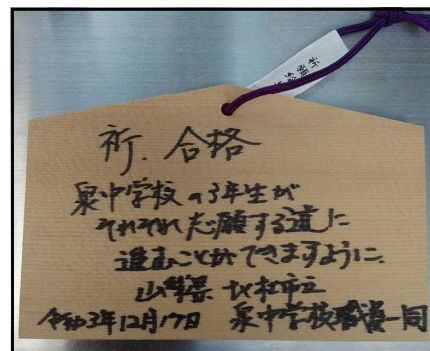 祈.合格
泉中学校の3年生が
それぞれ志願する道に
進むことができますように.
山梨県 北杜市立
令和3年12月17日 泉中学校職員一同
祈願